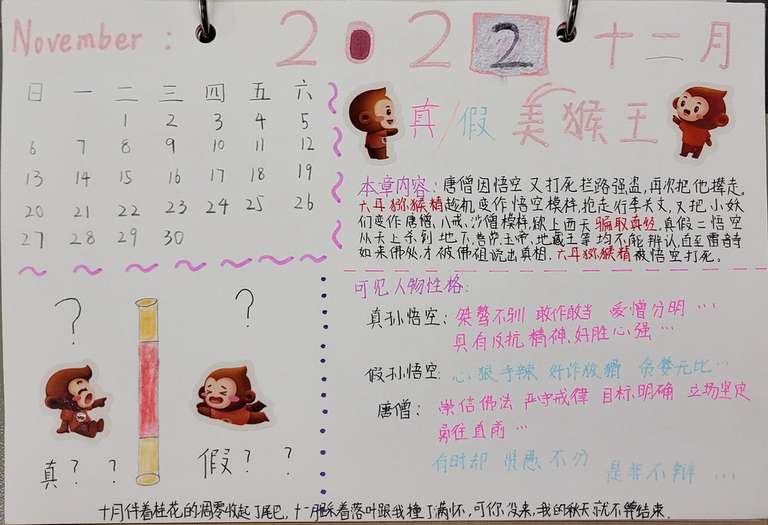 November : 2022 十一月
日 一 二 三 四 五 六
1 2 3 4 5
6 7 8 9 10 11 12
13 14 15 16 17 18 19
20 21 22 23 24 25 26
27 28 29 30
真/假 美猴王
本章内容: 唐僧因悟空又打死拦路强盗,再次把他撵走。
六耳猕猴精趁机变作悟空模样,抢走行李关文,又把小妖
们变作唐僧、八戒、沙僧模样,欲上西天骗取真经。真假二悟空
从天上杀到地下,菩萨、玉帝、地藏王等均不能辨认,直至雷音寺
如来佛处,才被佛祖说出真相,六耳猕猴精被悟空打死。
可见人物性格:
真孙悟空: 桀骜不驯 敢作敢当 爱憎分明 ···
具有反抗精神,好胜心强 ···
假孙悟空: 心狠手辣 奸诈狡猾 贪婪无比 ···
唐僧: 崇信佛法 严守戒律 目标明确 立场坚定
勇往直前 ···
有时却 贤愚不分 是非不辩 ···
? ?
真 ? ? 假 ? ?
十月伴着桂花的凋零收起了尾巴,十一月踩着落叶跟我撞了满怀,可你没来,我的秋天就不算结束.